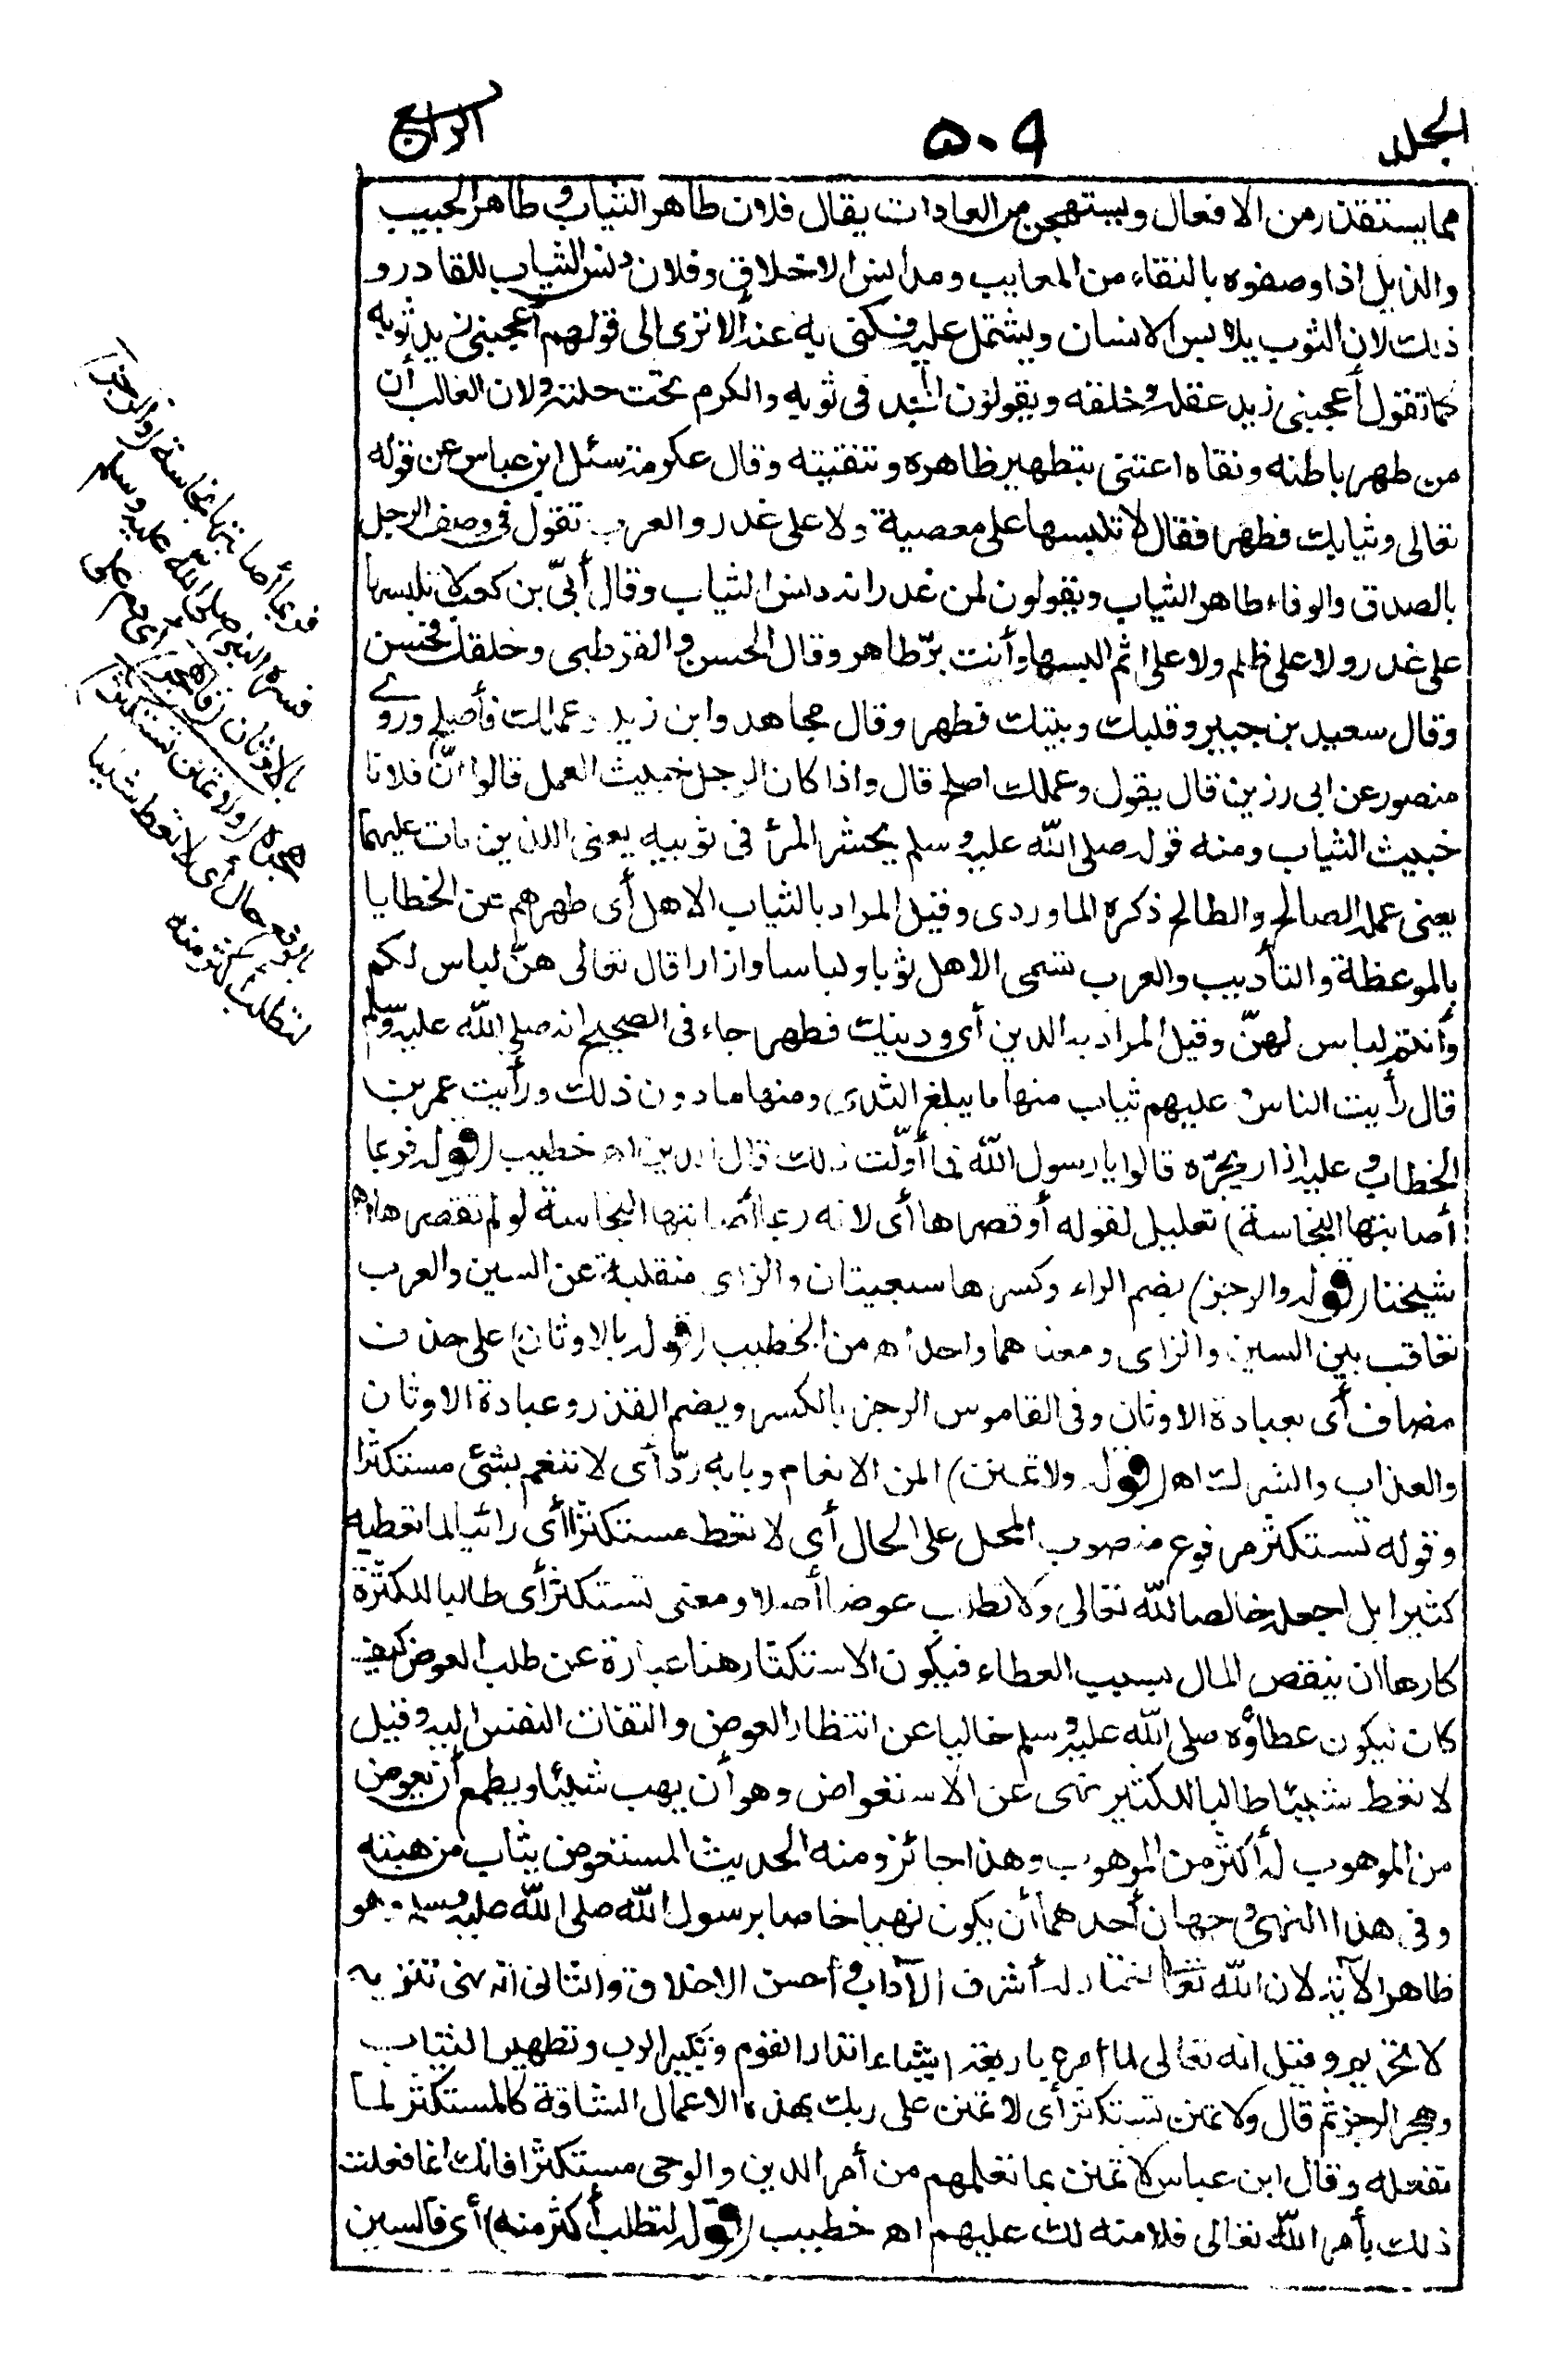 الجلد
٥٠٩
الرابع
مما يستقذر من الافعال ويستهجن من العادات يقال فلان طاهر الثياب وطاهر الجيب
والذيل اذا وصفوه بالنقاء من المعايب ومدانس الاخلاق وفلان دنس الثياب للغادر و
ذلك لان الثوب يلابس الانسان ويشتمل عليه فكنى به عنه ألا ترى الى قولهم أعجبنى زيد ثوبه
كما تقول أعجبنى زيد عقله وخلقه ويقولون المجد فى ثوبه والكرم تحت حلته ولان الغالب أن
من طهر باطنه ونقاه اعتنى بتطهير ظاهره وتنقيته وقال عكرمة سئل ابن عباس عن قوله
تعالى وثيابك فطهر فقال لا تلبسها على معصية ولا على غدر والعرب تقول فى وصف الرجل
بالصدق والوفاء طاهر الثياب ويقولون لمن غدر انه دنس الثياب وقال أبىّ بن كعب لا تلبسها
على غدر ولا على ظلم ولا على اثم البسها وأنت برّ طاهر وقال الحسن والقرطبى وخلقك فحسن
وقال سعيد بن جبير وقلبك وبيتك فطهر وقال مجاهد وابن زيد وعملك فأصلح وروى
منصور عن ابى رزين قال يقول وعملك اصلح قال واذا كان الرجل خبيث العمل قالوا انّ فلانا
خبيث الثياب ومنه قوله صلى الله عليه وسلم يحشر المرأ فى ثوبيه يعنى اللذين مات عليهما
يعنى عمله الصالح والطالح ذكره الماوردى وقيل المراد بالثياب الاهل أى طهرهم عن الخطايا
بالموعظة والتأديب والعرب تسمى الاهل ثوبا ولباسا وازارا قال تعالى هنّ لباس لكم
وأنتم لباس لهنّ وقيل المراد به الدين أى ودينك فطهر جاء فى الصحيح انه صلى الله عليه وسلم
قال رأيت الناس عليهم ثياب منها ما يبلغ الثدى ومنها ما دون ذلك ورأيت عمر بن
الخطاب وعليه ازار يجرّه قالوا يا رسول الله فما أوّلت ذلك قال الدين اه خطيب (قوله فربما
أصابتها النجاسة) تعليل لقوله أو قصرها أى لانه ربما أصابتها النجاسة لو لم تقصرها اه
شيخنا (قوله والرجز) بضم الراء وكسرها سبعيتان والزاى منقلبة عن السين والعرب
تعاقب بين السين والزاى ومعناهما واحد اه من الخطيب (قوله بالاوثان) على حذف
مضاف أى بعبادة الاوثان وفى القاموس الرجز بالكسر ويضم القذر وعبادة الاوثان
والعذاب والشرك اه (قوله ولا تمنن) المن الانعام وبابه ردّ أى لا تنعم بشئ مستكثرا
وقوله تستكثر مرفوع منصوب المحل على الحال أى لا تعط مستكثرا أى رائيا لما تعطيه
كثيرا بل اجعله خالصا لله تعالى ولا تطلب عوضا أصلا ومعنى تستكثر أى طالبا للكثرة
كارها ان ينقص المال بسبب العطاء فيكون الاستكثار هنا عبارة عن طلب العوض كيف
كان ليكون عطاؤه صلى الله عليه وسلم خاليا عن انتظار العوض والتفات النفس اليه وقيل
لا تعط شيئا طالبا للكثير نهى عن الاستغواض وهو أن يهب شيئا ويطمع أن يعوض
من الموهوب له أكثر من الموهوب وهذا جائز ومنه الحديث المستغوض يثاب من هبته
وفى هذا النهى وجهان أحدهما أن يكون نهيا خاصا برسول الله صلى الله عليه وسلم وهو
ظاهر الآية لان الله تعالى اختار له أشرف الآداب وأحسن الاخلاق والثانى انه نهى تنزيه
لا تحريم وقيل انه تعالى لما أمره باربعة اشياء انذار القوم وتكبير الرب وتطهير الثياب
وهجر الرجز ثم قال ولا تمنن تستكثر أى لا تمنن على ربك بهذه الاعمال الشاقة كالمستكثر لما
تفعله وقال ابن عباس لا تمنن بما تعلمهم من أمر الدين والوحى مستكثرا فانك انما فعلت
ذلك بأمر الله تعالى فلا منة لك عليهم اه خطيب (قوله لتطلب أكثر منه) أى فالسين
فربما أصابتها نجاسة (والرجز)
فسره النبى صلى الله عليه وسلم
بالاوثان (فاهجر) أى دم على
هجره (ولا تمنن تستكثر)
بالرفع حال أى لا تعط شيئا
لتطلب أكثر منه